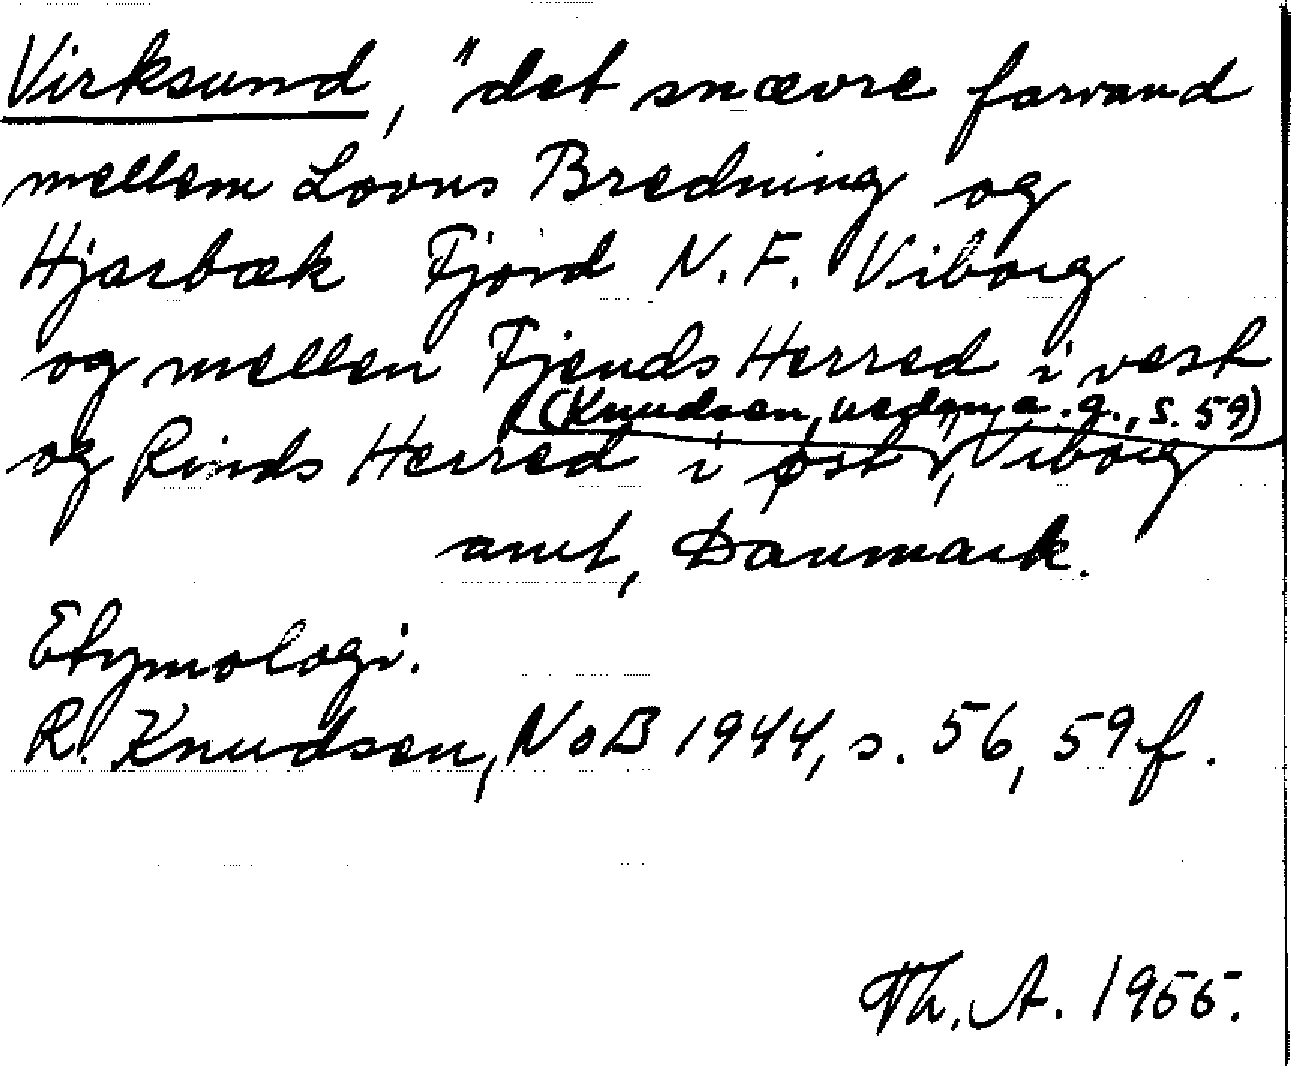 Virksund, "det snævre farvand
mellem Lovns Bredning og
Hjarbæk Fjord N. F. Viborg
og mellem Fjends Herred i vest
(Knudsen, nedan a. a., s. 59)
og Rinds Herred i øst", Viborg
amt, Danmark.
Etymologi.
R. Knudsen, NoB 1944, s. 56, 59 f.
Th. A. 1955.